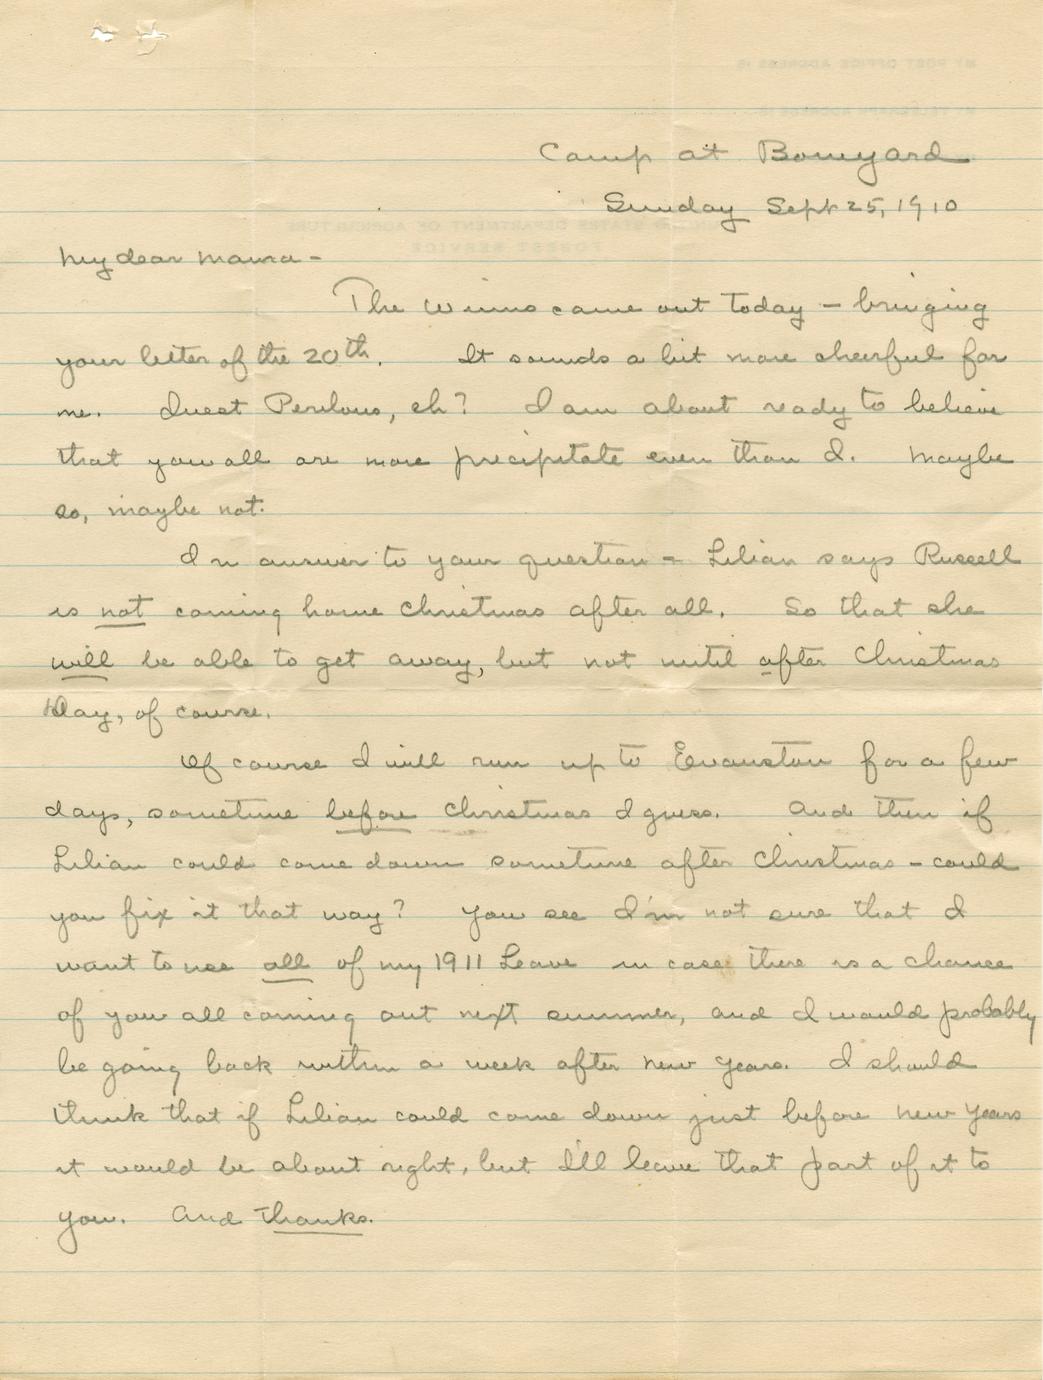 Camp at Boneyard
Sunday Sept 25, 1910
My dear Mama -
The Winns came out today - bringing
your letter of the 20th. It sounds a bit more cheerful for
me. Quest Perilous, eh? I am about ready to believe
that you all are more precipitate even than I. Maybe
so, maybe not.
In answer to your question - Lilian says Russell
is not coming home Christmas after all. So that she
will be able to get away, but not until after Christmas
Day, of course.
Of course I will run up to Evanston for a few
days, sometime before Christmas I guess. And then if
Lilian could come down sometime after Christmas - could
you fix it that way? You see I'm not sure that I
want to use all of my 1911 Leave in case there is a chance
of you all coming out next summer, and I would probably
be going back within a week after New Years. I should
think that if Lilian could come down just before New Years
it would be about right, but I'll leave that part of it to
you. And thanks.
MY POST OFFICE ADDRESS IS
MY TELEGRAPH ADDRESS IS
UNITED STATES DEPARTMENT OF AGRICULTURE
FOREST SERVICE